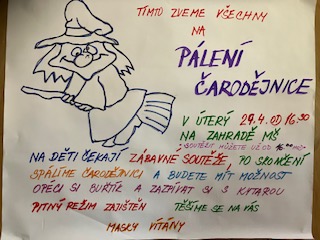 TÍMTO ZVEME VŠECHNY
NA
PÁLENÍ
ČARODĚJNICE
V ÚTERÝ 29.4. OD 16:30
NA ZAHRADĚ MŠ
SOUTĚŽIT MŮŽETE UŽ OD
NA DĚTI ČEKAJÍ ZÁBAVNÉ SOUTĚŽE, PO SKONČENÍ
SPÁLÍME ČARODĚJNICI A BUDETE MÍT MOŽNOST
OPÉCI SI BUŘTÍK A ZAZPÍVAT SI S KYTAROU
PITNÝ REŽIM ZAJIŠTĚN TĚŠÍME SE NA VÁS
MASKY VÍTÁNY